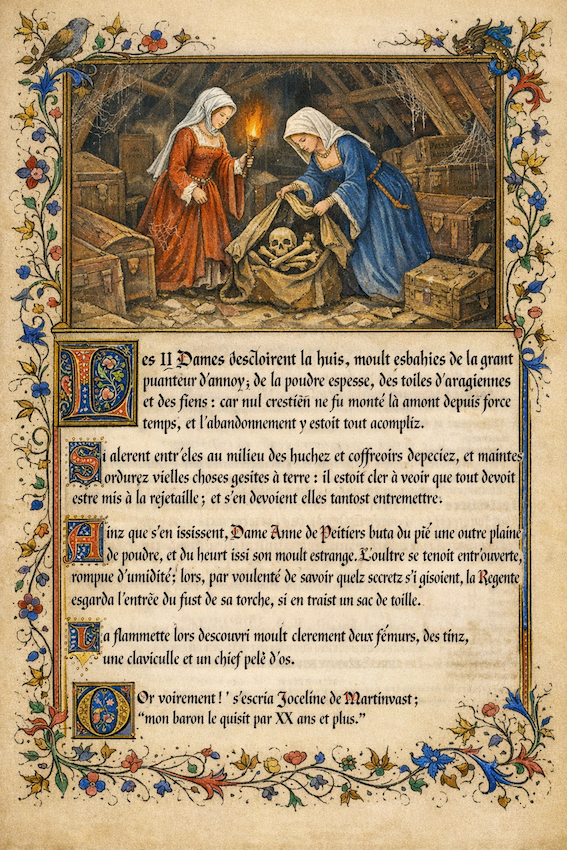 Les II Dames descloirent la huis, moult esbahies de la grant
puanteur d'annoy; de la poudre espesse, des toiles d'aragiennes
et des fiens : car nul crestiën ne fu monté là amont depuis force
temps, et l'abandonnement y estoit tout acompliz.
Si alerent entr'eles au milieu des huchez et coffreoirs depeciez, et maintes
ordurez vielles choses gesites à terre : il estoit cler à veoir que tout devoit
estre mis à la rejetaille ; et s'en devoient elles tantost entremettre.
Ainz que s'en ississent, Dame Anne de Peitiers buta du pié une outre plaine
de poudre, et du heurt issi son moult estrange. L'oultre se tenoit entr'ouverte,
rompue d'umidité; lors, par voulenté de savoir quelz secretz s'i gisoient, la Regente
esgarda l'entrée du fust de sa torche, si en traist un sac de toille.
La flammette lors descouvri moult clerement deux fémurs, des tinz,
une claviculle et un chief pelè d'os.
O Or voirement ! ' s'escria Joceline de Martinvast ;
"mon baron le quisit par XX ans et plus."